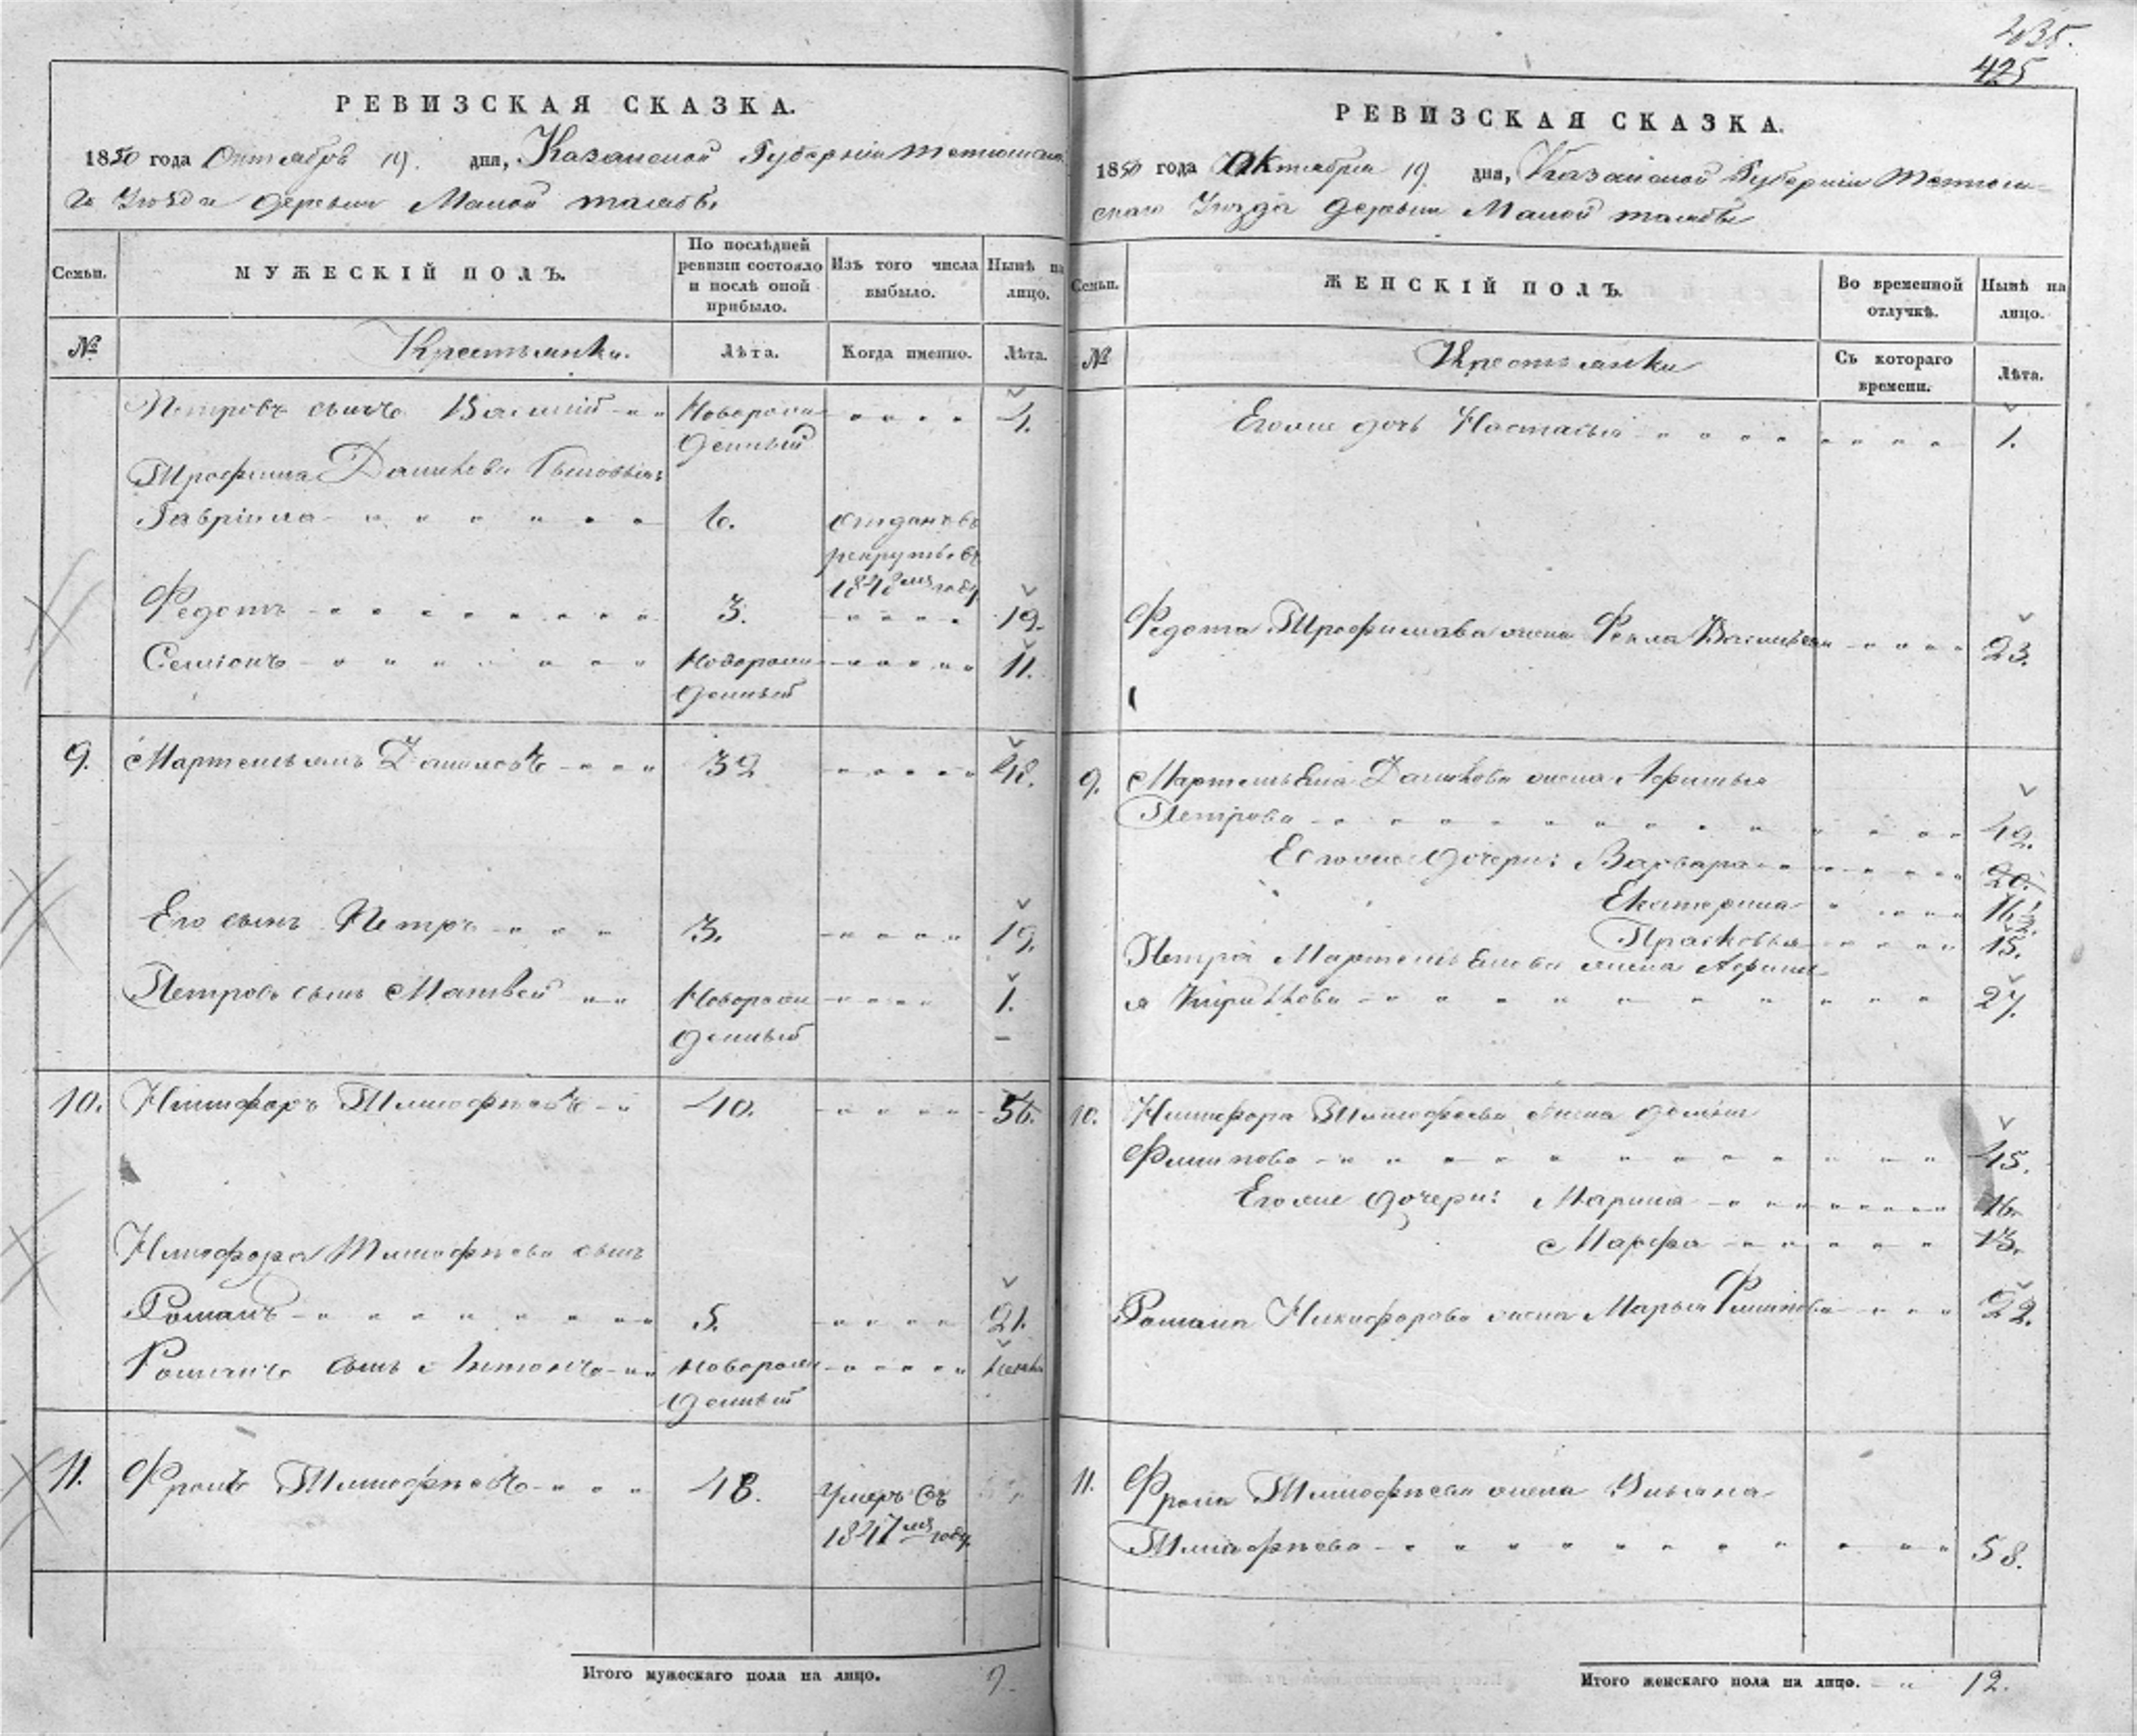 435.
425
РЕВИЗСКАЯ СКАЗКА.
1850 года Октября 19. дня, Казанской Губернии Тетюшска-
го Уѣзда деревни Малой
Семьи.
МУЖЕСКІЙ ПОЛЪ.
По послѣдней ревизіи состояло и послѣ оной прибыло.
Изъ того числа выбыло.
Нынѣ на лицо.
№
Лѣта.
Когда именно.
Лѣта.
Петровъ сынъ Василий Новорож- 4.
денный
Трофима Данилова сыновья
Гавріила 6. отданъ въ
рекруты въ
1848мъ году
Федотъ 3. 19.
Семіонъ Новорож- 11.
денный
9. Мартемьянъ Даниловъ 32 48.
Его сынъ Петръ 3. 19.
Петровъ сынъ Матвей Новорож- 1.
денный
10. Никифоръ Тимофѣевъ 40. 56.
Никифора Тимофѣева сынъ
Романъ 5. 21.
Романъ сынъ Антонъ новорож-
денный
11. Фролъ Тимофѣевъ 48. Умеръ въ
1847мъ году
Итого мужескаго пола на лицо. 9.
РЕВИЗСКАЯ СКАЗКА.
1850 года Октября 19. дня, Казанской Губерніи Тетюш-
скаго Уѣзда деревни Малой
Семьи.
ЖЕНСКІЙ ПОЛЪ.
Во временной отлучкѣ.
Нынѣ на лицо.
№
Крестьянки
Съ котораго времени.
Лѣта.
Егоже дочь Настасья 1.
Федота Трофимава жена Фекла Васильева 23.
9. Мартемьяна Данилова жена Афимья
Петрова 49.
Егоже дочери: Варвара 20.
Екатерина 16½
Прасковья 15.
Петра Мартемьянова жена Афимь-
я Кирилова 27.
10. Никифора Тимофеева жена
Филипова 45.
Егоже дочери: Марина 16.
Марфа 13.
Романа Никифорова жена Марья Филипова 22.
11. Фрола Тимофѣева жена Ульяна
Тимофѣева 58.
Итого женскаго пола на лицо. 12.